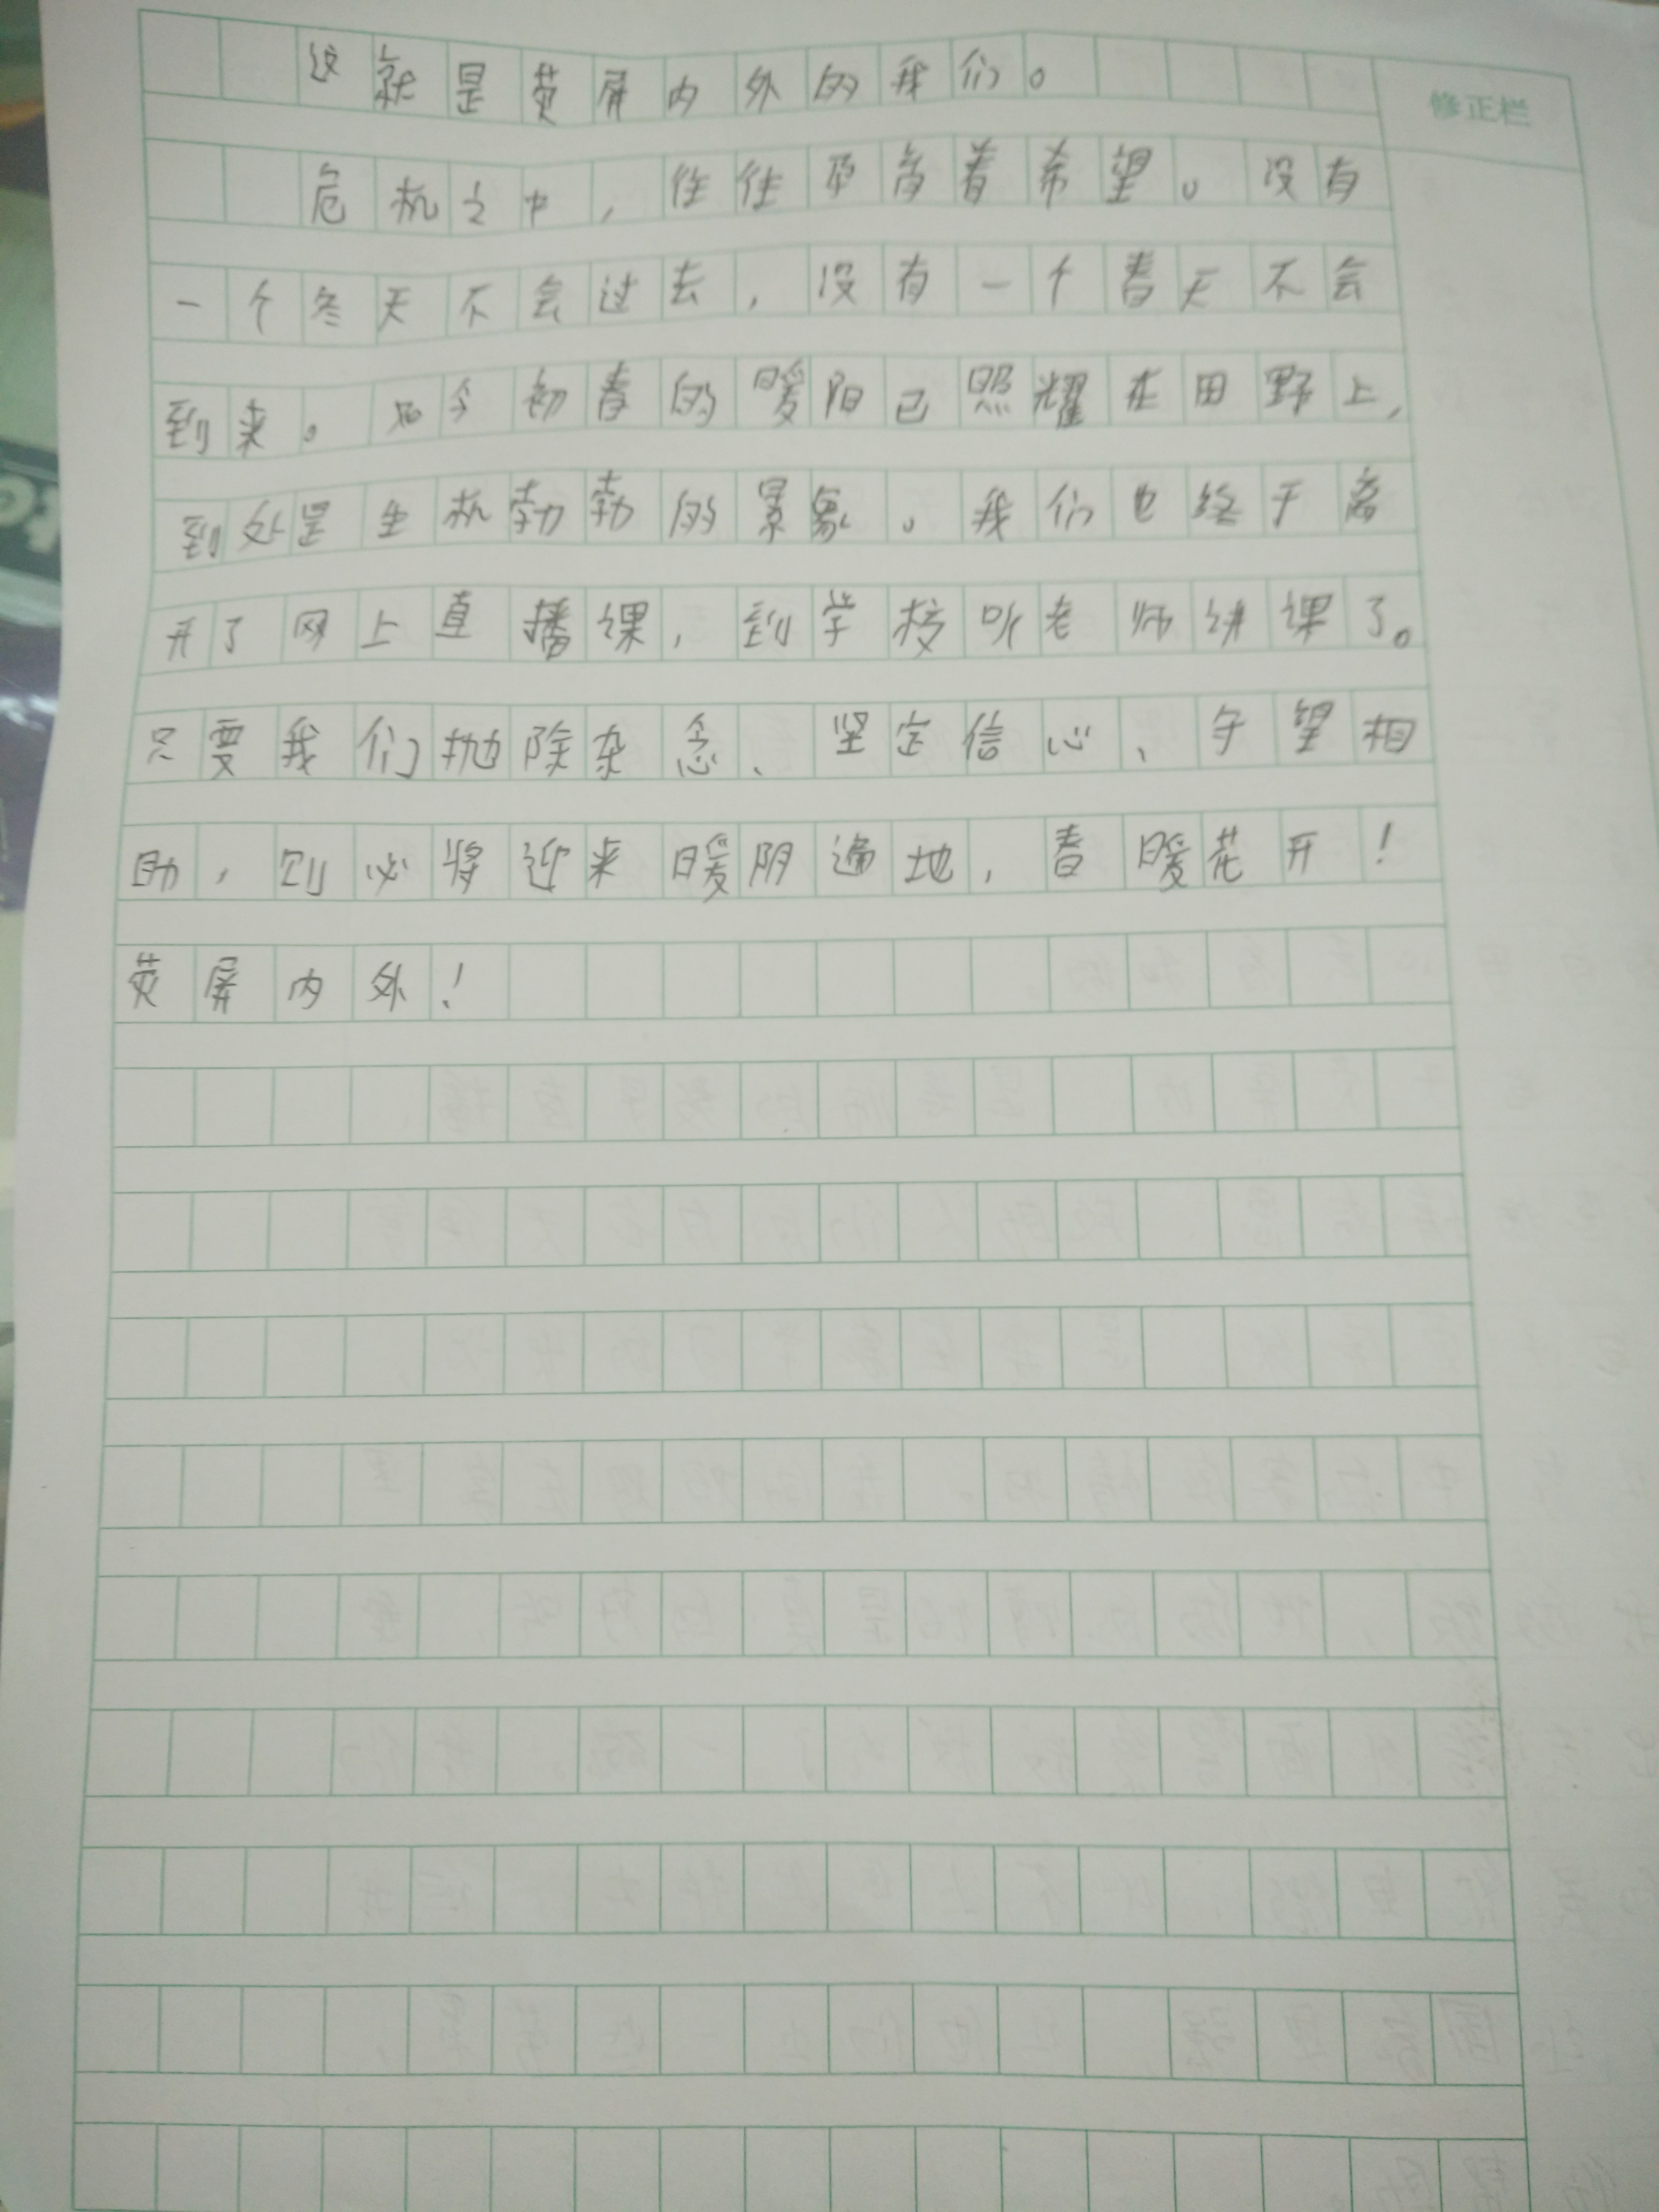 这就是荧屏内外的我们。
修正栏
危机之中，往往孕育着希望。没有
一个冬天不会过去，没有一个春天不会
到来。如今初春的暖阳已照耀在田野上，
到处是生机勃勃的景象。我们也终于离
开了网上直播课，到学校听老师讲课了。
只要我们抛除杂念、坚定信心、守望相
助，则必将迎来暖阴遍地，春暖花开！
荧屏内外！